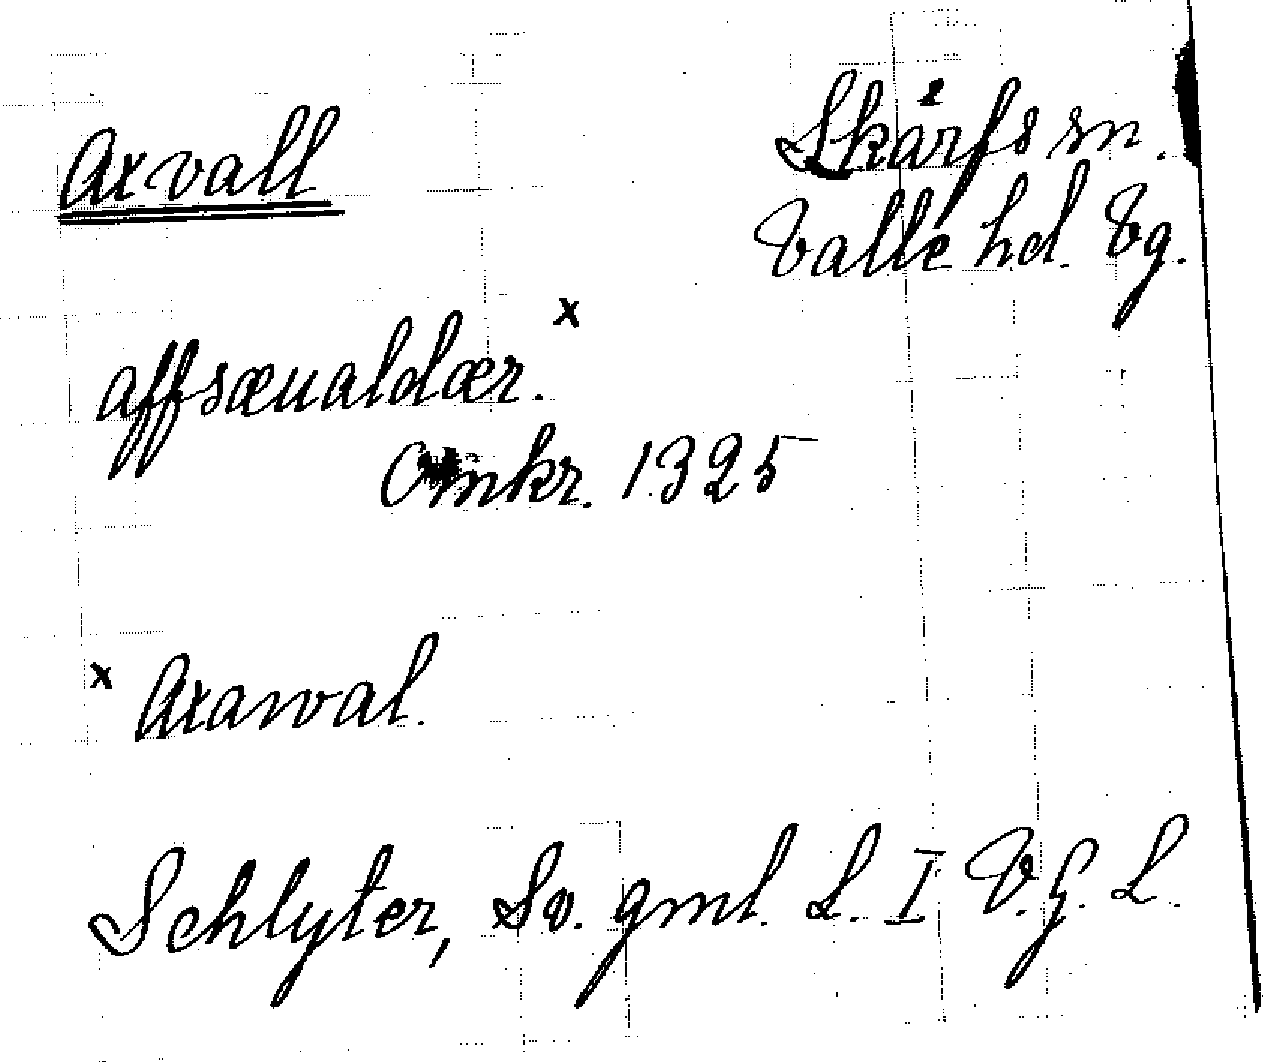 Axvall
Skärfs sn.
Valle hd. Vg.
affsæualdær. x
Omkr. 1325
x Axawal.
Schlyter, Sv. gml. L. I V.G. L.